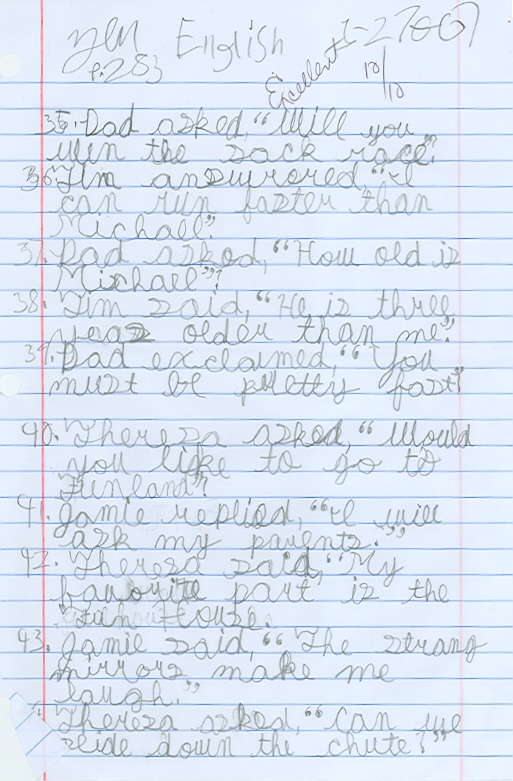 English 1-27-07
p. 283
Excellent 10/10
35. Dad asked, “Will you
win the sack race”?
36. Tim answrored “I
can run faster than
Michael”.
37. Dad asked, “How old is
Michael”?
38. Tim said, “He is three
years older than me”.
39. Dad exclaimed, “You
must be pretty fast”!
40. Theresa asked, “Would
you like to go to
Funland”?
41. Jamie replied, “I will
ask my parents.”
42. Theresa said, “My
favorite part is the
Fun House.
43. Jamie said, “The strang
mirrors make me
laugh.”
Theresa asked, “Can we
slide down the chute?”